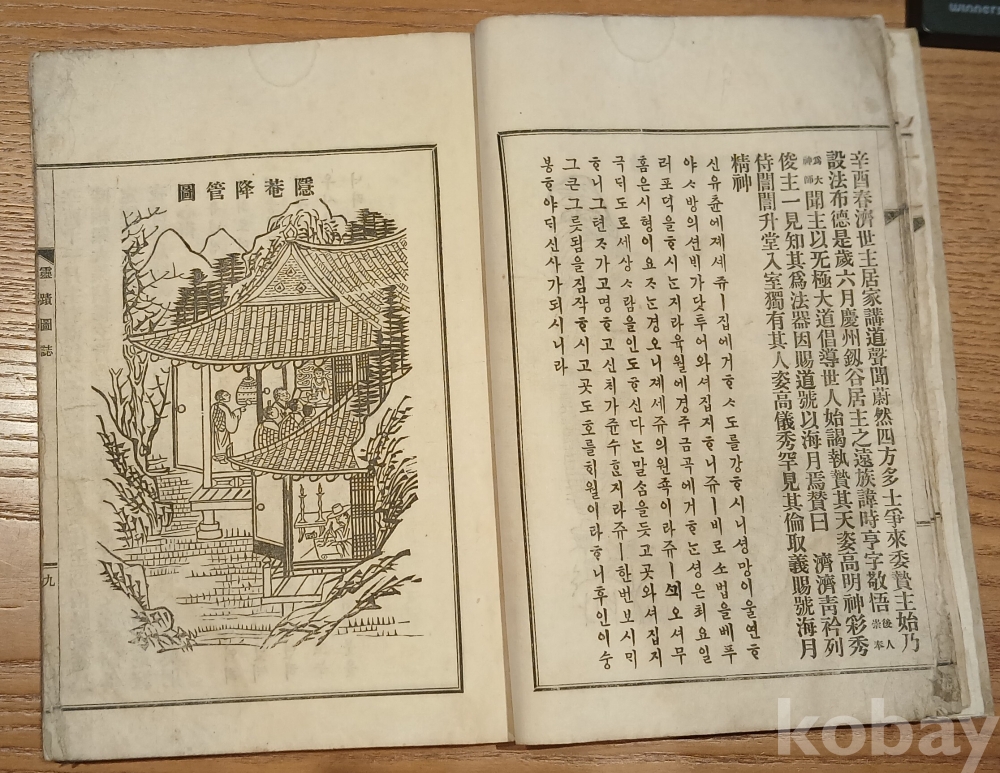 辛酉春濟世主居家講道聲聞蔚然四方多士爭來委贄主始乃
設法布德是歲六月慶州釼谷居主之遠族諱時亨字敬悟後人崇奉
爲大神師聞主以无極大道倡導世人始謁執贄其天姿高明神彩秀
俊主一見知其爲法器因賜道號以海月焉贊曰 濟濟靑衿列
侍誾誾升堂入室獨有其人姿高儀秀罕見其倫取義賜號海月
精神
신유츈에제세쥬ㅣ집에거ᄒᆞᄉᆞ도를강ᄒᆞ시니셩망이울연ᄒᆞ
야ᄉᆞ방의션비가닷투어와셔집지ᄒᆞ니쥬ㅣ비로소법을베푸
리포덕을ᄒᆞ시ᄂᆞᆫ지라육월에경주금곡에거ᄒᆞᄂᆞᆫ셩은최요일
홈은시형이요ᄌᆞᄂᆞᆫ경오니제세쥬의원족이라쥬ㅣ오셔무
극ᄃᆡ도로세상ᄉᆞ람을인도ᄒᆞ신다ᄂᆞᆫ말슴을듯고곳와셔집지
ᄒᆞ니그텬ᄌᆞ가고명ᄒᆞ고신치가쥰수ᄒᆞᆫ지라쥬ㅣ한번보시ᄆᆡ
그큰그릇됨을짐작ᄒᆞ시고곳도호를ᄒᆡ월이라ᄒᆞ니후인이숭
봉ᄒᆞ야ᄃᆡ신사가되시니라
隱菴降管圖
靈蹟圖誌
九
kobay